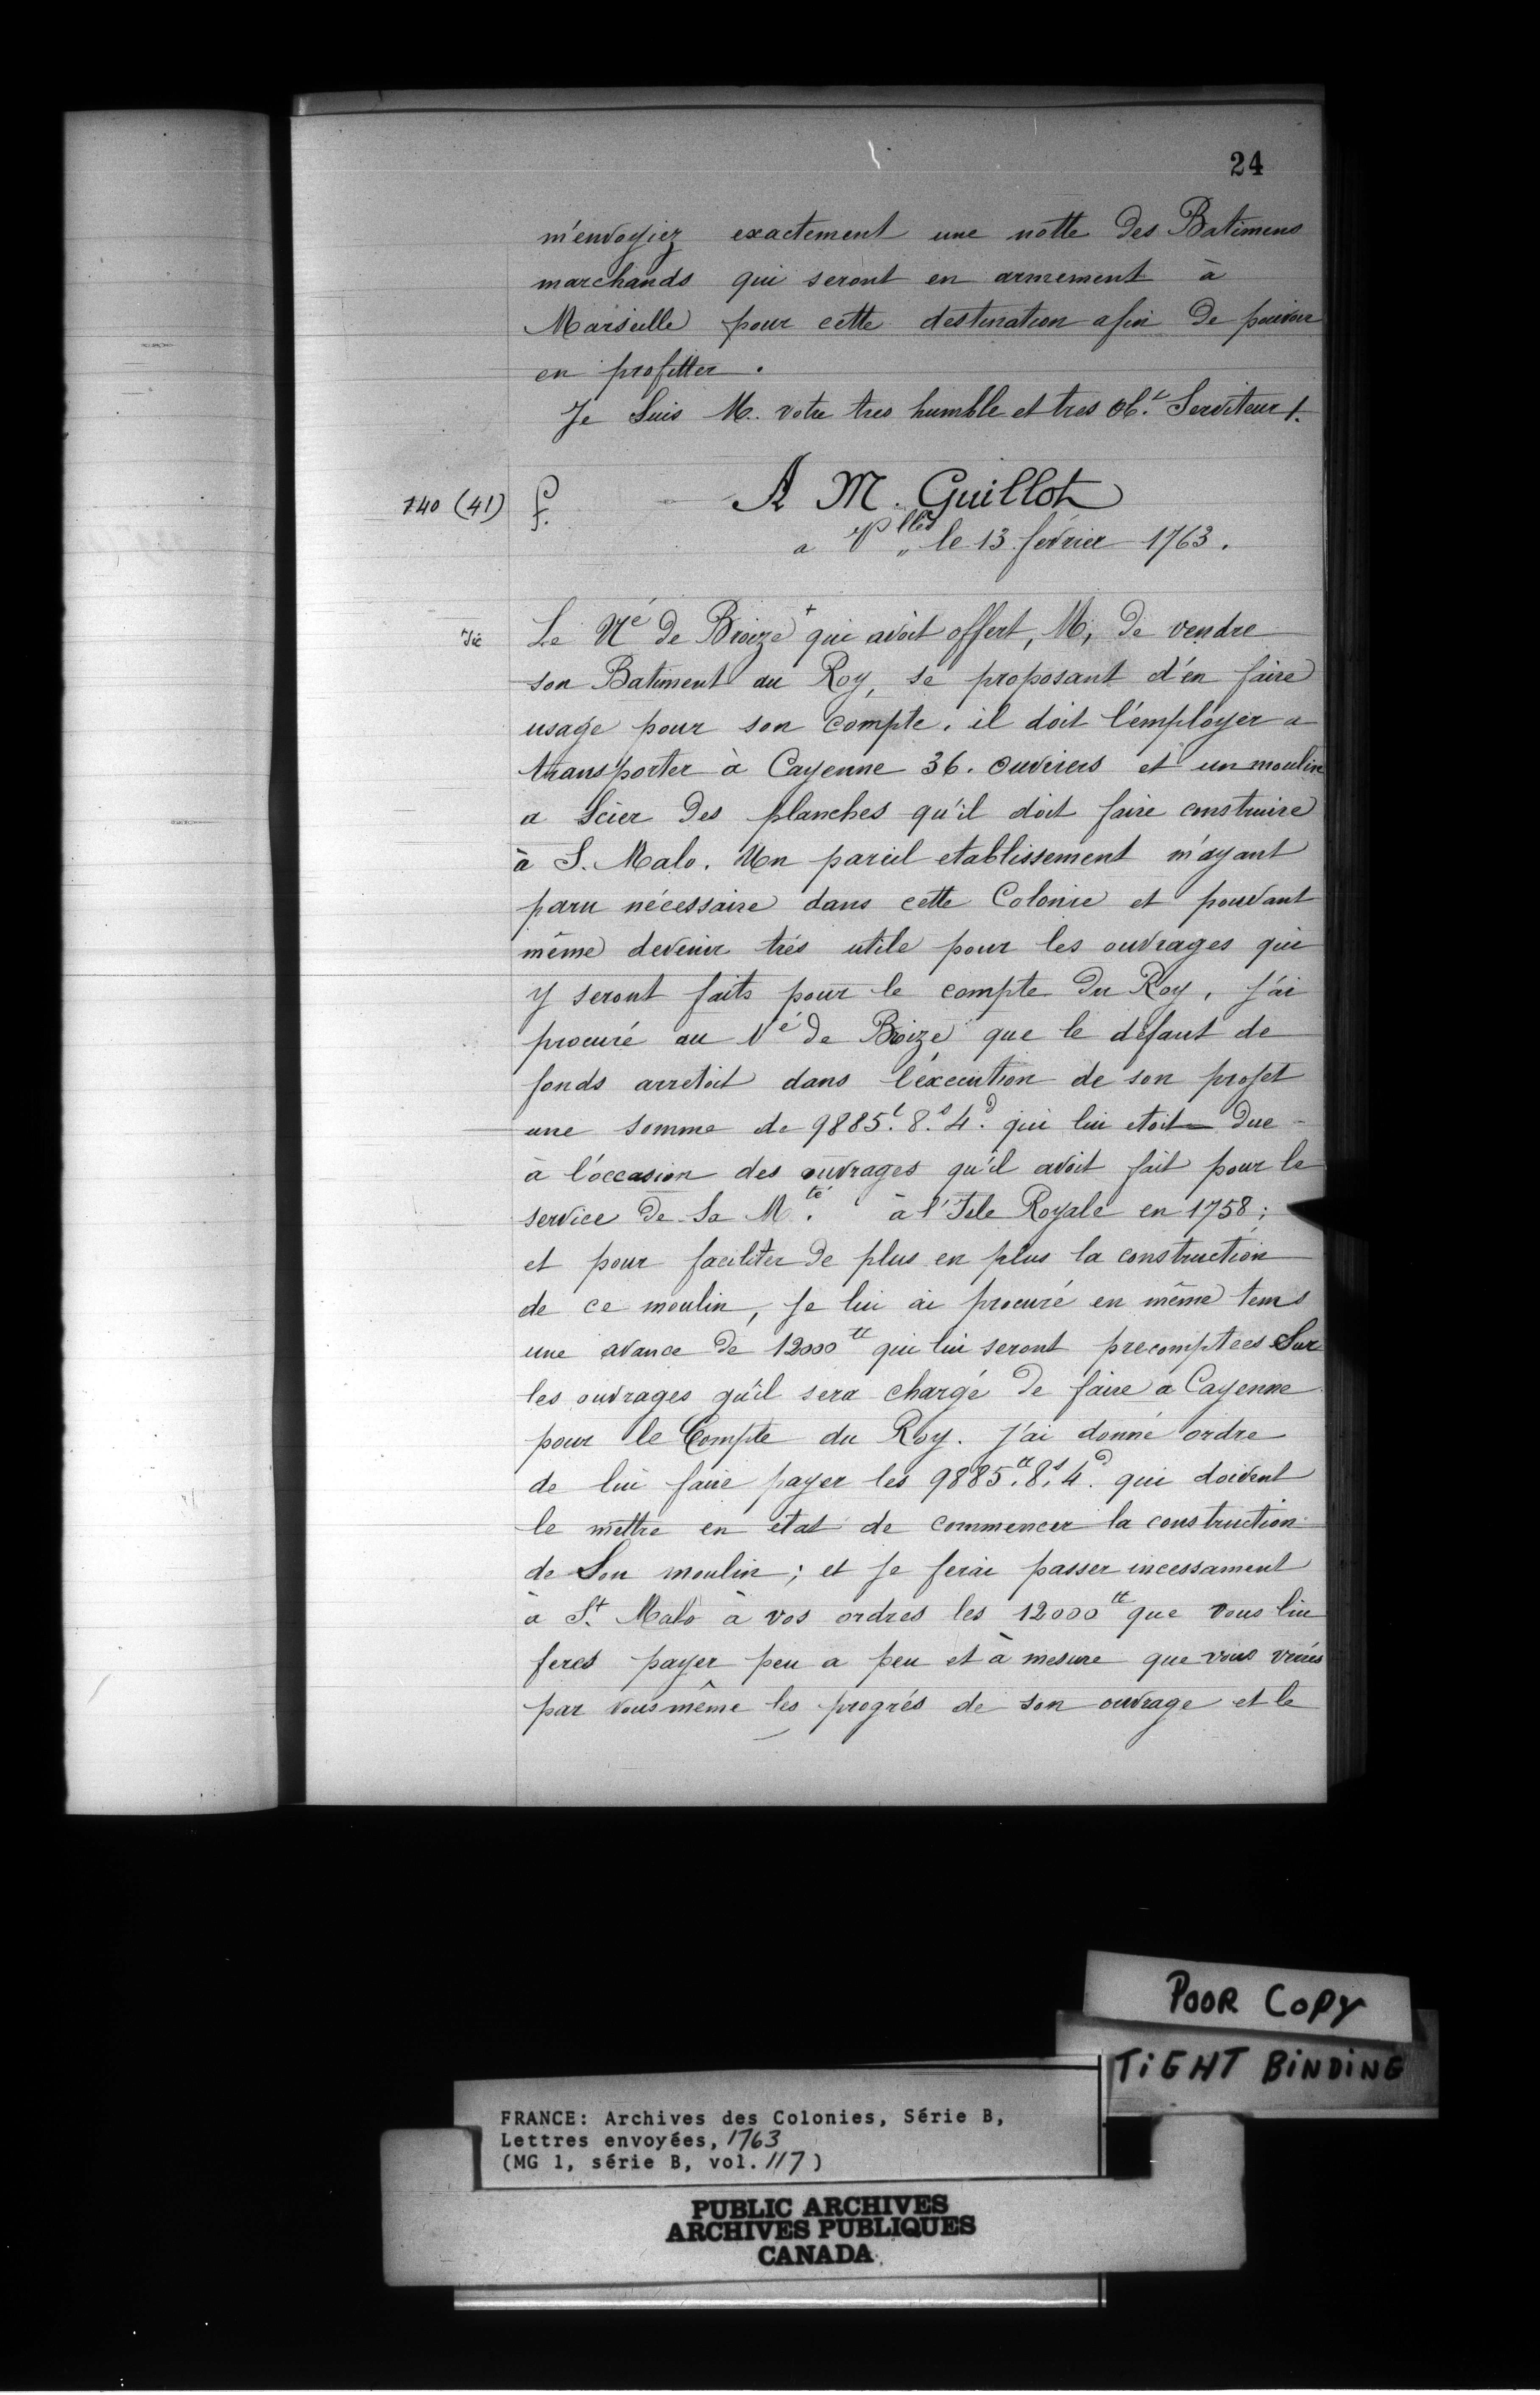 24
m'envoyiez exactement une notte des Batimens
marchands qui seront en armement à
Marseille pour cette destination afin de pouvoir
en profitter.
Je Suis M. votre tres humble et tres ob.t Serviteur /.
140 (41) A M. Guillot
a Vlles le 13 février 1763.
Sic Le Né de Broize + qui avoit offert, M, de vendre
son Batiment au Roy, se proposant d'en faire
usage pour son compte. il doit l'employer a
transporter à Cayenne 36. ouvriers et un moulin
a Scier des planches qu'il doit faire construire
à S. Malo. Un pareil etablissement m'ayant
paru nécessaire dans cette Colonie et pouvant
même devenir trés utile pour les ouvrages qui
y seront faits pour le compte du Roy, j'ai
procuré au Né de Broize que le défaut de
fonds arretoit dans l'éxecution de son projet
une somme de 9885.l 8.s 4.d qui lui etoit due
à l'occasion des ouvrages qu'il avoit fait pour le
service de Sa M.té à l'Isle Royale en 1758;
et pour faciliter de plus en plus la construction
de ce moulin, je lui ai procuré en même tems
une avance de 12000 tt qui lui seront precomptées Sur
les ouvrages qu'il sera chargé de faire a Cayenne
pour le Compte du Roy. J'ai donné ordre
de lui faire payer les 9885.tt 8.s 4.d qui doivent
le mettre en état de commencer la construction
de Son moulin; et je ferai passer incessament
à S.t Malo à vos ordres les 12000 tt que vous lui
ferés payer peu a peu et à mesure que vous verrés
par vous même les progrés de son ouvrage et le
POOR COPY
TIGHT BINDING
FRANCE: Archives des Colonies, Série B,
Lettres envoyées, 1763
(MG 1, série B, vol. 117)
PUBLIC ARCHIVES
ARCHIVES PUBLIQUES
CANADA